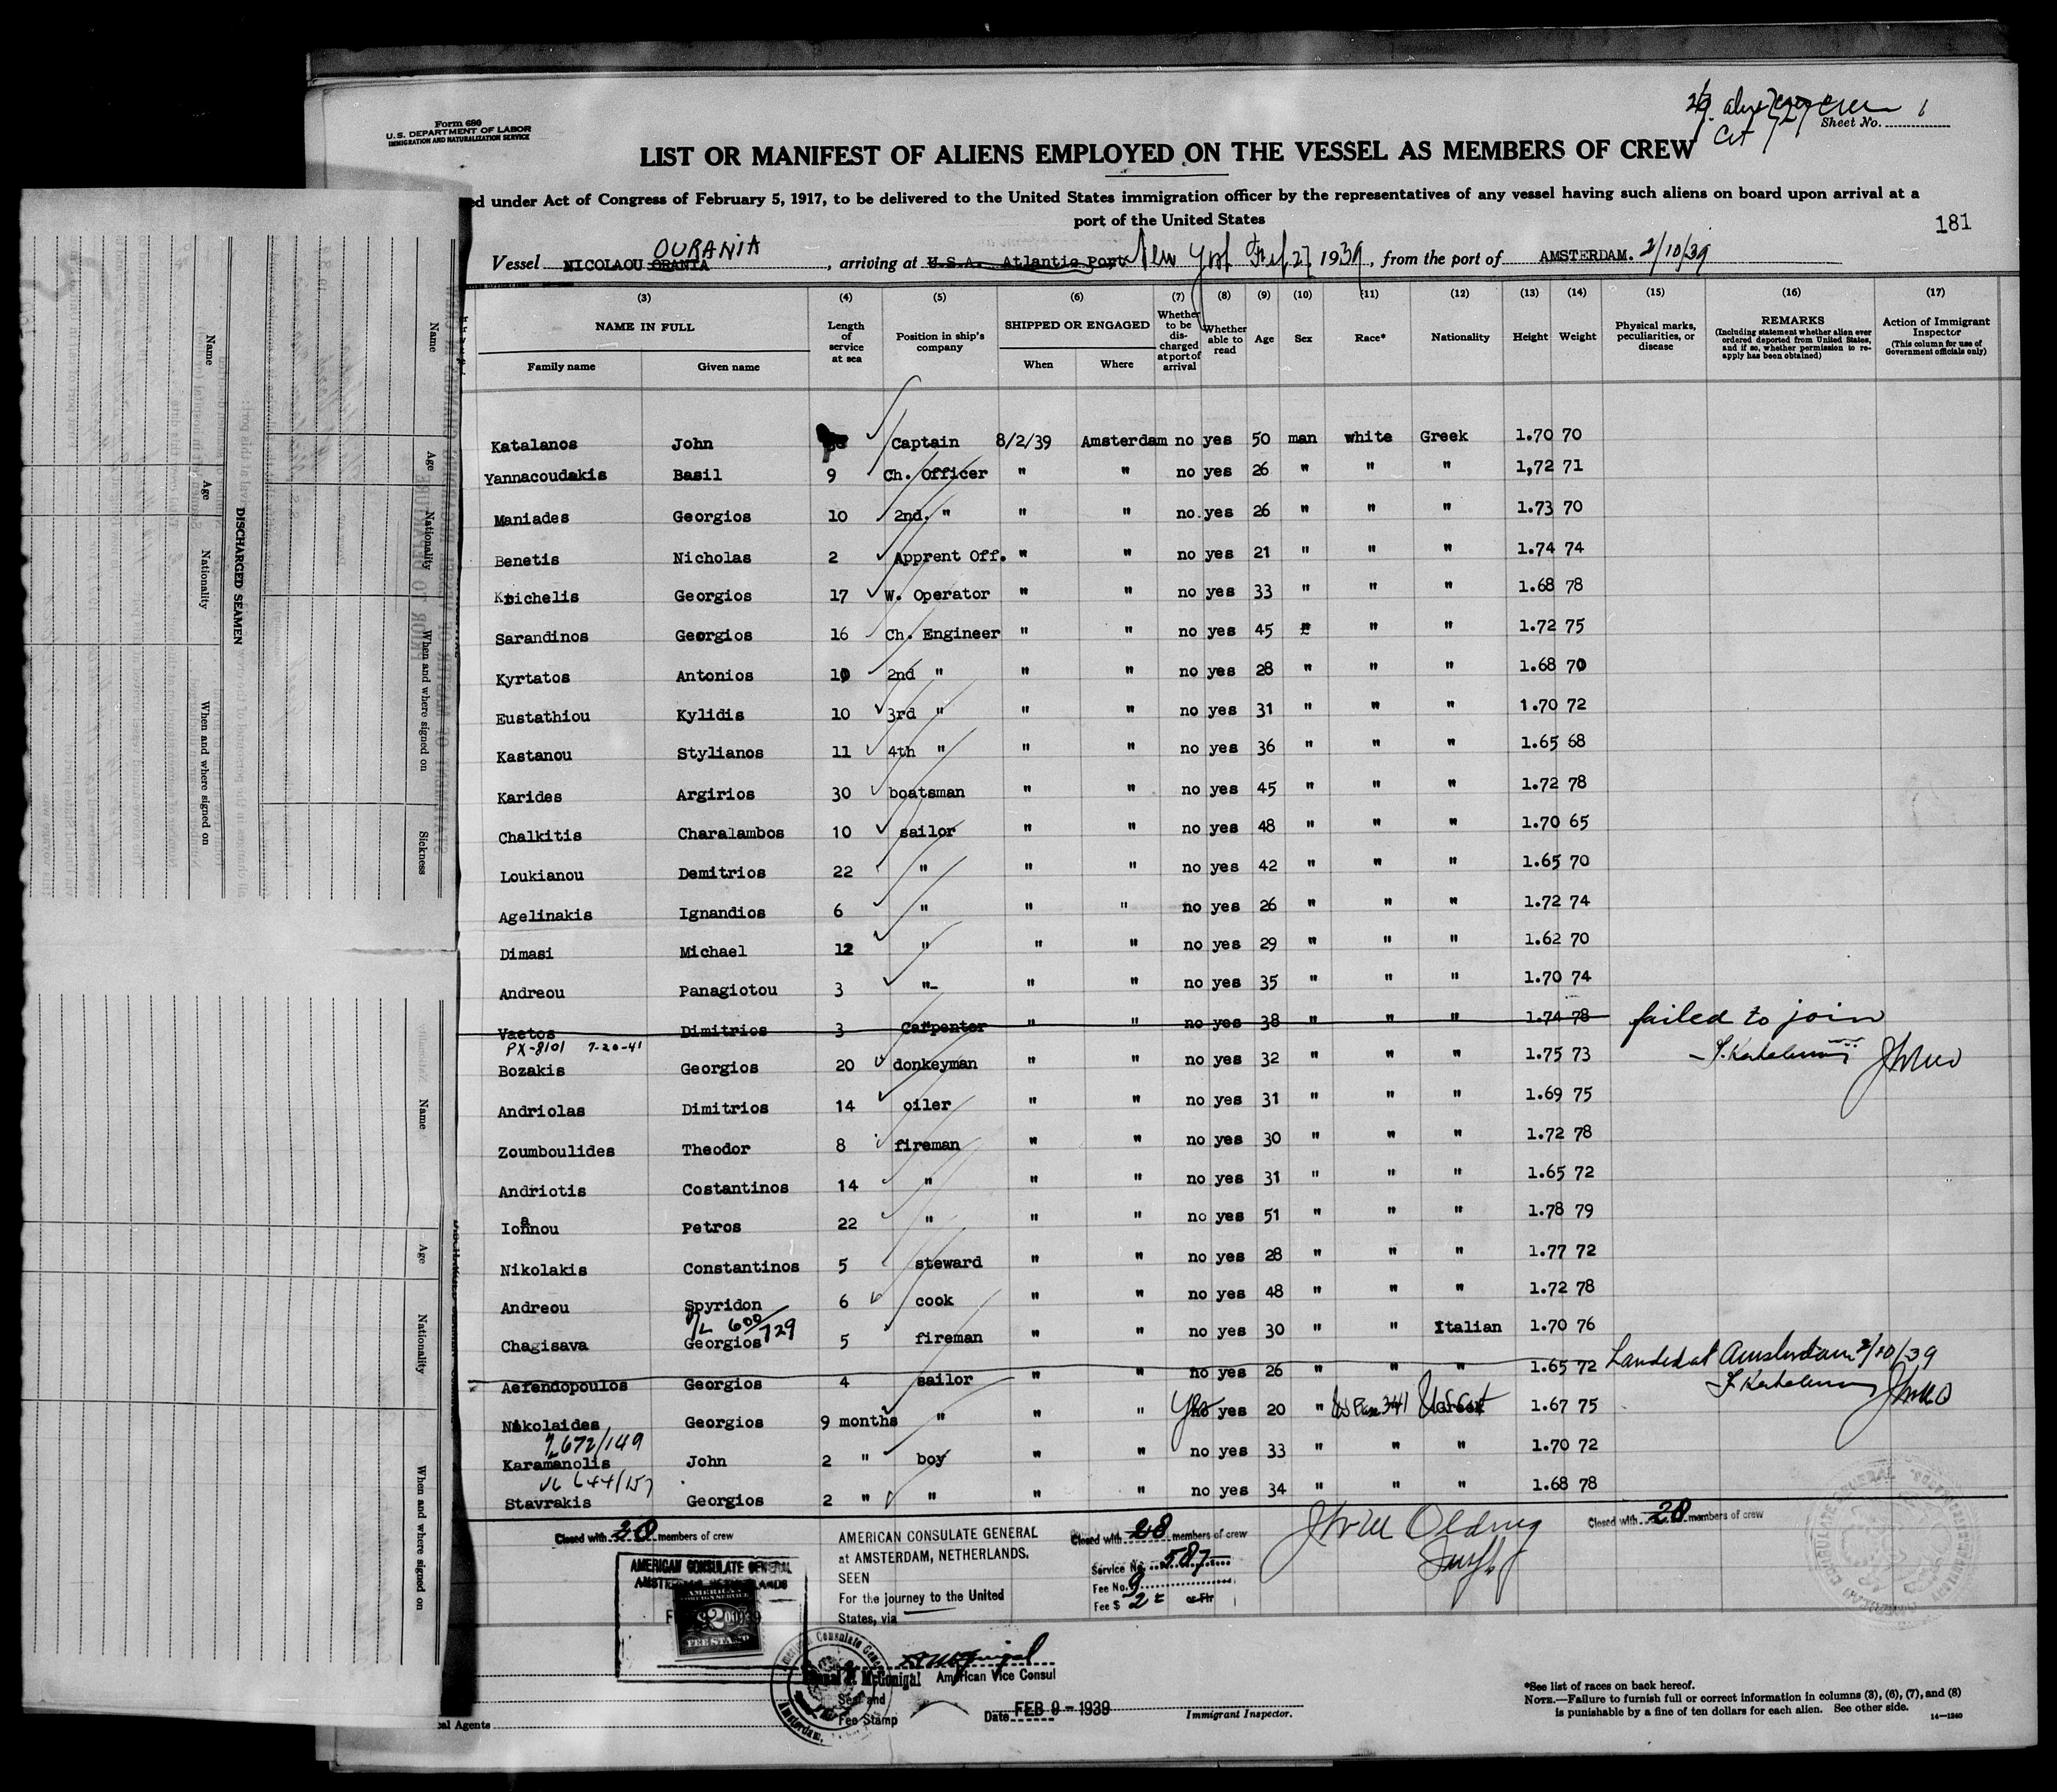 Form 680
U.S. DEPARTMENT OF LABOR
IMMIGRATION AND NATURALIZATION SERVICE
Sheet No. 1
LIST OR MANIFEST OF ALIENS EMPLOYED ON THE VESSEL AS MEMBERS OF CREW
ed under Act of Congress of February 5, 1917, to be delivered to the United States immigration officer by the representatives of any vessel having such aliens on board upon arrival at a
port of the United States
181
OURANIA
Vessel NICOLAOU ORANIA, arriving at U.S.A. Atlantic Port New York Feb 27 1939, from the port of AMSTERDAM. 2/10/39
(3) (4) (5) (6) (7) (8) (9) (10) (11) (12) (13) (14) (15) (16) (17)
NAME IN FULL Family name Given name Length of service at sea Position in ship's company SHIPPED OR ENGAGED When Where Whether to be discharged at port of arrival Whether able to read Age Sex Race* Nationality Height Weight Physical marks, peculiarities, or disease REMARKS (Including statement whether alien ever ordered deported from United States, and if so, whether permission to reapply has been obtained) Action of Immigrant Inspector (This column for use of Government officials only)
Katalanos John Captain 8/2/39 Amsterdam no yes 50 man white Greek 1.70 70
Yannacoudakis Basil 9 Ch. Officer " " no yes 26 " " " 1,72 71
Maniades Georgios 10 2nd. " " " no. yes 26 " " " 1.73 70
Benetis Nicholas 2 Apprent Off. " " no yes 21 " " " 1.74 74
Georgios 17 W. Operator " " no yes 33 " " " 1.68 78
Sarandinos Georgios 16 Ch. Engineer " " no yes 45 " " " 1.72 75
Kyrtatos Antonios 10 2nd " " " no yes 28 " " " 1.68 70
Eustathiou Kylidis 10 3rd " " " no yes 31 " " " 1.70 72
Kastanou Stylianos 11 4th " " " no yes 36 " " " 1.65 68
Karides Argirios 30 boatsman " " no yes 45 " " " 1.72 78
Chalkitis Charalambos 10 sailor " " no yes 48 " " " 1.70 65
Loukianou Demitrios 22 " " " no yes 42 " " " 1.65 70
Agelinakis Ignandios 6 " " " no yes 26 " " " 1.72 74
Dimasi Michael 12 " " " no yes 29 " " " 1.62 70
Andreou Panagiotou 3 "- " " no yes 35 " " " 1.70 74
Vaetos Dimitrios 3 Carpenter " " no yes 38 " " " 1.74 78 failed to join
PX-8101 7-20-41
Bozakis Georgios 20 donkeyman " " no yes 32 " " " 1.75 73
Andriolas Dimitrios 14 oiler " " no yes 31 " " " 1.69 75
Zoumboulides Theodor 8 fireman " " no yes 30 " " " 1.72 78
Andriotis Costantinos 14 " " " no yes 31 " " " 1.65 72
Ioannou Petros 22 " " " no yes 51 " " " 1.78 79
Nikolakis Constantinos 5 steward " " no yes 28 " " " 1.77 72
Andreou Spyridon 6 cook " " no yes 48 " " " 1.72 78
600/729
Chagisava Georgios 5 fireman " " no yes 30 " " Italian 1.70 76
Aefendopoulos Georgios 4 sailor " " no yes 26 " " " 1.65 72 Landed at Amsterdam 2/10/39
Nikolaides Georgios 9 months " " " yes 20 " 1.67 75
672/149
Karamanolis John 2 " boy " " no yes 33 " " " 1.70 72
644/157
Stavrakis Georgios 2 " " " " no yes 34 " " " 1.68 78
Closed with 28 members of crew
Closed with 28 members of crew
Closed with 28 members of crew
AMERICAN CONSULATE GENERAL
at AMSTERDAM, NETHERLANDS.
SEEN
For the journey to the United
States, via
Service No. 587
Fee No. 9
Fee $ 2
AMERICAN CONSULATE GENERAL
FEE STAMP
McGonigal American Vice Consul
Seal and
Fee Stamp
Date FEB 9 - 1939
Immigrant Inspector.
al Agents
*See list of races on back hereof.
NOTE.—Failure to furnish full or correct information in columns (3), (6), (7), and (8)
is punishable by a fine of ten dollars for each alien. See other side.
14—1240
DISCHARGED SEAMEN
Name Age Nationality When and where signed on
Name Age Nationality When and where signed on Sickness
Name Age Nationality When and where signed on